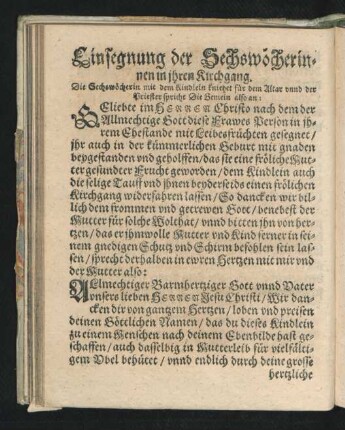 Einsegnung der Sechswöcherin-
nen in jhren Kirchgang.
Die Sechswöcherin mit dem Kindlein kniehet für dem Altar vnnd der
Priester spricht Die Gemein also an:
GEliebte im HERREN Christo nach dem der
Allmechtige Gott diese Frawes Person in jh-
rem Ehestande mit Leibesfrüchten gesegnet/
jhr auch in der kümmerlichen Geburt mit gnaden
beygestanden vnd geholffen/ das sie eine fröliche Mut-
ter gesundter Frucht geworden/ dem Kindlein auch
die selige Tauff vnd jhnen beyderseids einen frölichen
Kirchgang widerfahren lassen/ So dancken wir bil-
lich dem frommen vnd getrewen Gott/ benebest der
Mutter für solche Wolthat/ vnnd bitten jhn von her-
tzen/ das er jhm wolle Mutter vnd Kind ferner in sei-
nem gnedigen Schutz vnd Schirm befohlen sein las-
sen/ sprecht derhalben in ewren Hertzen mit mir vnd
der Mutter also:
ALlmechtiger Barmhertziger Gott vnnd Vater
vnsers lieben HERREN Jesu Christi/ Wir dan-
cken dir von gantzem Hertzen/ loben vnd preisen
deinen Göttlichen Namen/ das du dieses Kindlein
zu einem Menschen nach deinem Ebenbilde hast ge-
schaffen/ auch dasselbig in Mutterleib für vielfälti-
gem Vbel behütet/ vnnd endlich durch deine grosse
hertzliche